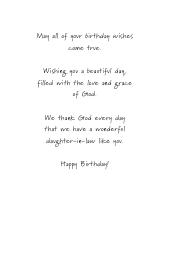 May all of your birthday wishes
come true.
Wishing you a beautiful day,
filled with the love and grace
of God.
We thank God every day
that we have a wonderful
daughter-in-law like you.
Happy Birthday!